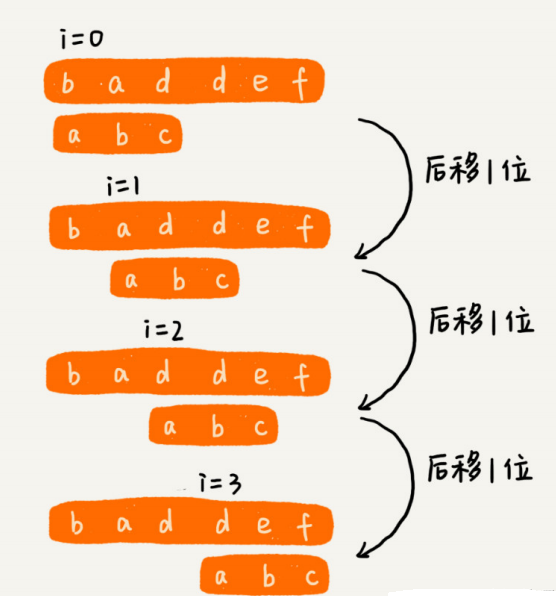 i=0
b a d d e f
a b c
后移1位
i=1
b a d d e f
a b c
后移1位
i=2
b a d d e f
a b c
后移1位
i=3
b a d d e f
a b c